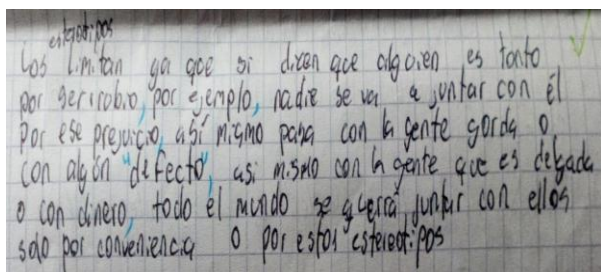 estereotipos
Los limitan ya que si dicen que alguien es tonto
por ser rubio, por ejemplo, nadie se va a juntar con él
por ese prejuicio, así mismo pasa con la gente gorda o
con algún "defecto", asi mismo con la gente que es delgada
o con dinero, todo el mundo se querrá juntar con ellos
solo por conveniencia o por estos estereotipos